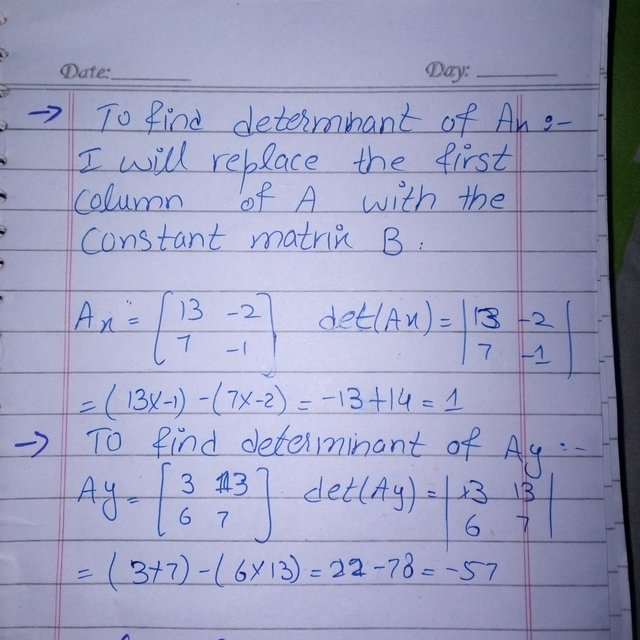 Date: Day:
→ To find determinant of Ax :-
I will replace the first
column of A with the
constant matrix B :
Ax = [13 -2 det(Ax) = |13 -2|
7 -1] |7 -1|
= (13x-1) - (7x-2) = -13+14 = 1
→ To find determinant of Ay :-
Ay = [3 13 det(Ay) = |3 13|
6 7] |6 7|
= (3+7) - (6x13) = 22 - 78 = -57